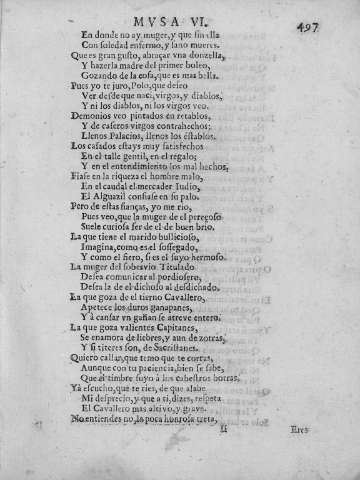 MVSA VI.
497
En donde no ay muger, y que sin ella
Con soledad enfermo, y sano mueres.
Que es gran gusto, abraçar vna donzella,
Y hazerla madre del primer boleo,
Gozando de la cosa, que es mas bella.
Pues yo te juro, Polo, que deseo
Ver desde que naci, virgos, y diablos,
Y ni los diablos, ni los virgos veo.
Demonios veo pintados en retablos,
Y de caseros virgos contrahechos;
Llenos Palacios, llenos los establos.
Los casados estays muy satisfechos
En el talle gentil, en el regalo;
Y en el entendimiento los mal hechos,
Fiase en la riqueza el hombre malo,
En el caudal el mercader Iudio,
El Alguazil confiase en su palo.
Pero de estas fianças, yo me rio,
Pues veo, que la muger de el pereçoso
Suele curiosa ser de el de buen brio.
La que tiene el marido bullicioso,
Imagina, como es el sossegado,
Y como el fiero, si es el suyo hermoso.
La muger del soberuio Titulado
Desea comunicar al pordiosero,
Desea la de el dichoso al desdichado.
La que goza de el tierno Cavallero,
Apetece los duros ganapanes,
Y à cansar vn gañan se atreve entero.
La que goza valientes Capitanes,
Se enamora de liebres, y aun de zorras,
Y si titeres son, de Sacristanes.
Quiero callar, que temo que te corras,
Aunque con tu paciencia, bien se sabe,
Que el timbre suyo à los cabestros borras.
Ya escucho, que te ries, de que alabe
Mi desprecio, y que a ti, dizes, respeta
El Cavallero mas altivo, y grave.
No entiendes no, la poca honrosa treta,
Ii
Eres